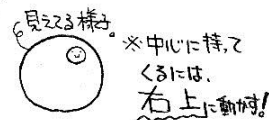 見えてる様子。
※中心に持って
くるには、
右上に動かす!